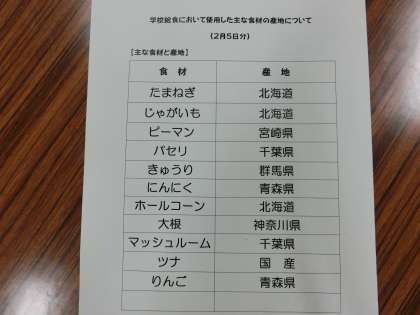 学校給食において使用した主な食材の産地について
（2月5日分）
［主な食材と産地］
食材 産地
たまねぎ 北海道
じゃがいも 北海道
ピーマン 宮崎県
パセリ 千葉県
きゅうり 群馬県
にんにく 青森県
ホールコーン 北海道
大根 神奈川県
マッシュルーム 千葉県
ツナ 国産
りんご 青森県